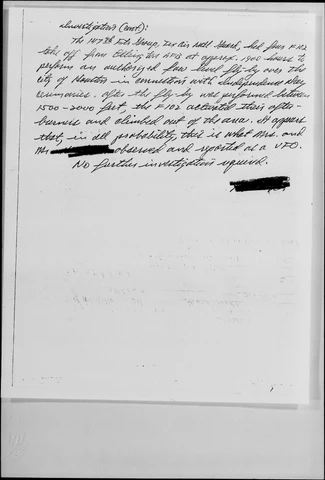 Investigation (cont.):
The 147th Ftr Group, Tex Air Natl Guard, had four F102
take off from Ellington AFB at approx. 1900 hours to
perform an authorized low level fly-by over the
city of Houston in connection with Independence Day
ceremonies. After the fly-by was performed between
1500-2000 feet, the F102 activated their after-
burners and climbed out of the area. It appears
that, in all probability, this is what Mrs. and
Mr. observed and reported as a UFO.
No further investigation required.